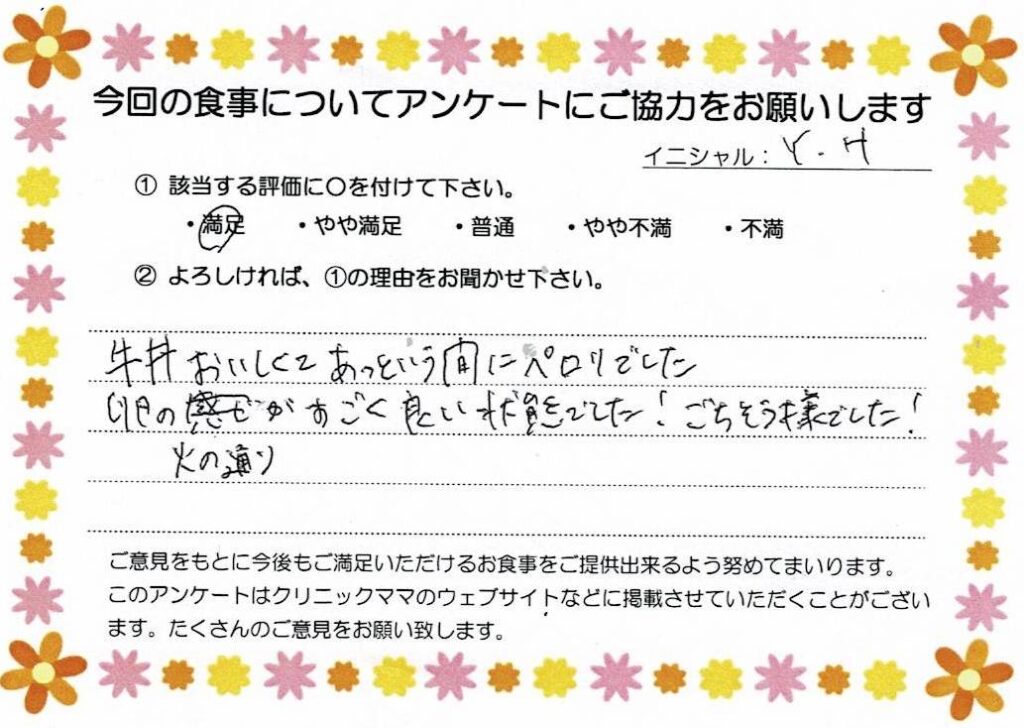 今回の食事についてアンケートにご協力をお願いします
イニシャル：Y.H
① 該当する評価に〇を付けて下さい。
・満足 ・やや満足 ・普通 ・やや不満 ・不満
② よろしければ、①の理由をお聞かせ下さい。
牛丼おいしくて あっという間にペロリでした
卵の がすごく良い状態でした！ごちそう様でした！
火の通り
ご意見をもとに今後もご満足いただけるお食事をご提供出来るよう努めてまいります。
このアンケートはクリニックママのウェブサイトなどに掲載させていただくことがござい
ます。たくさんのご意見をお願い致します。